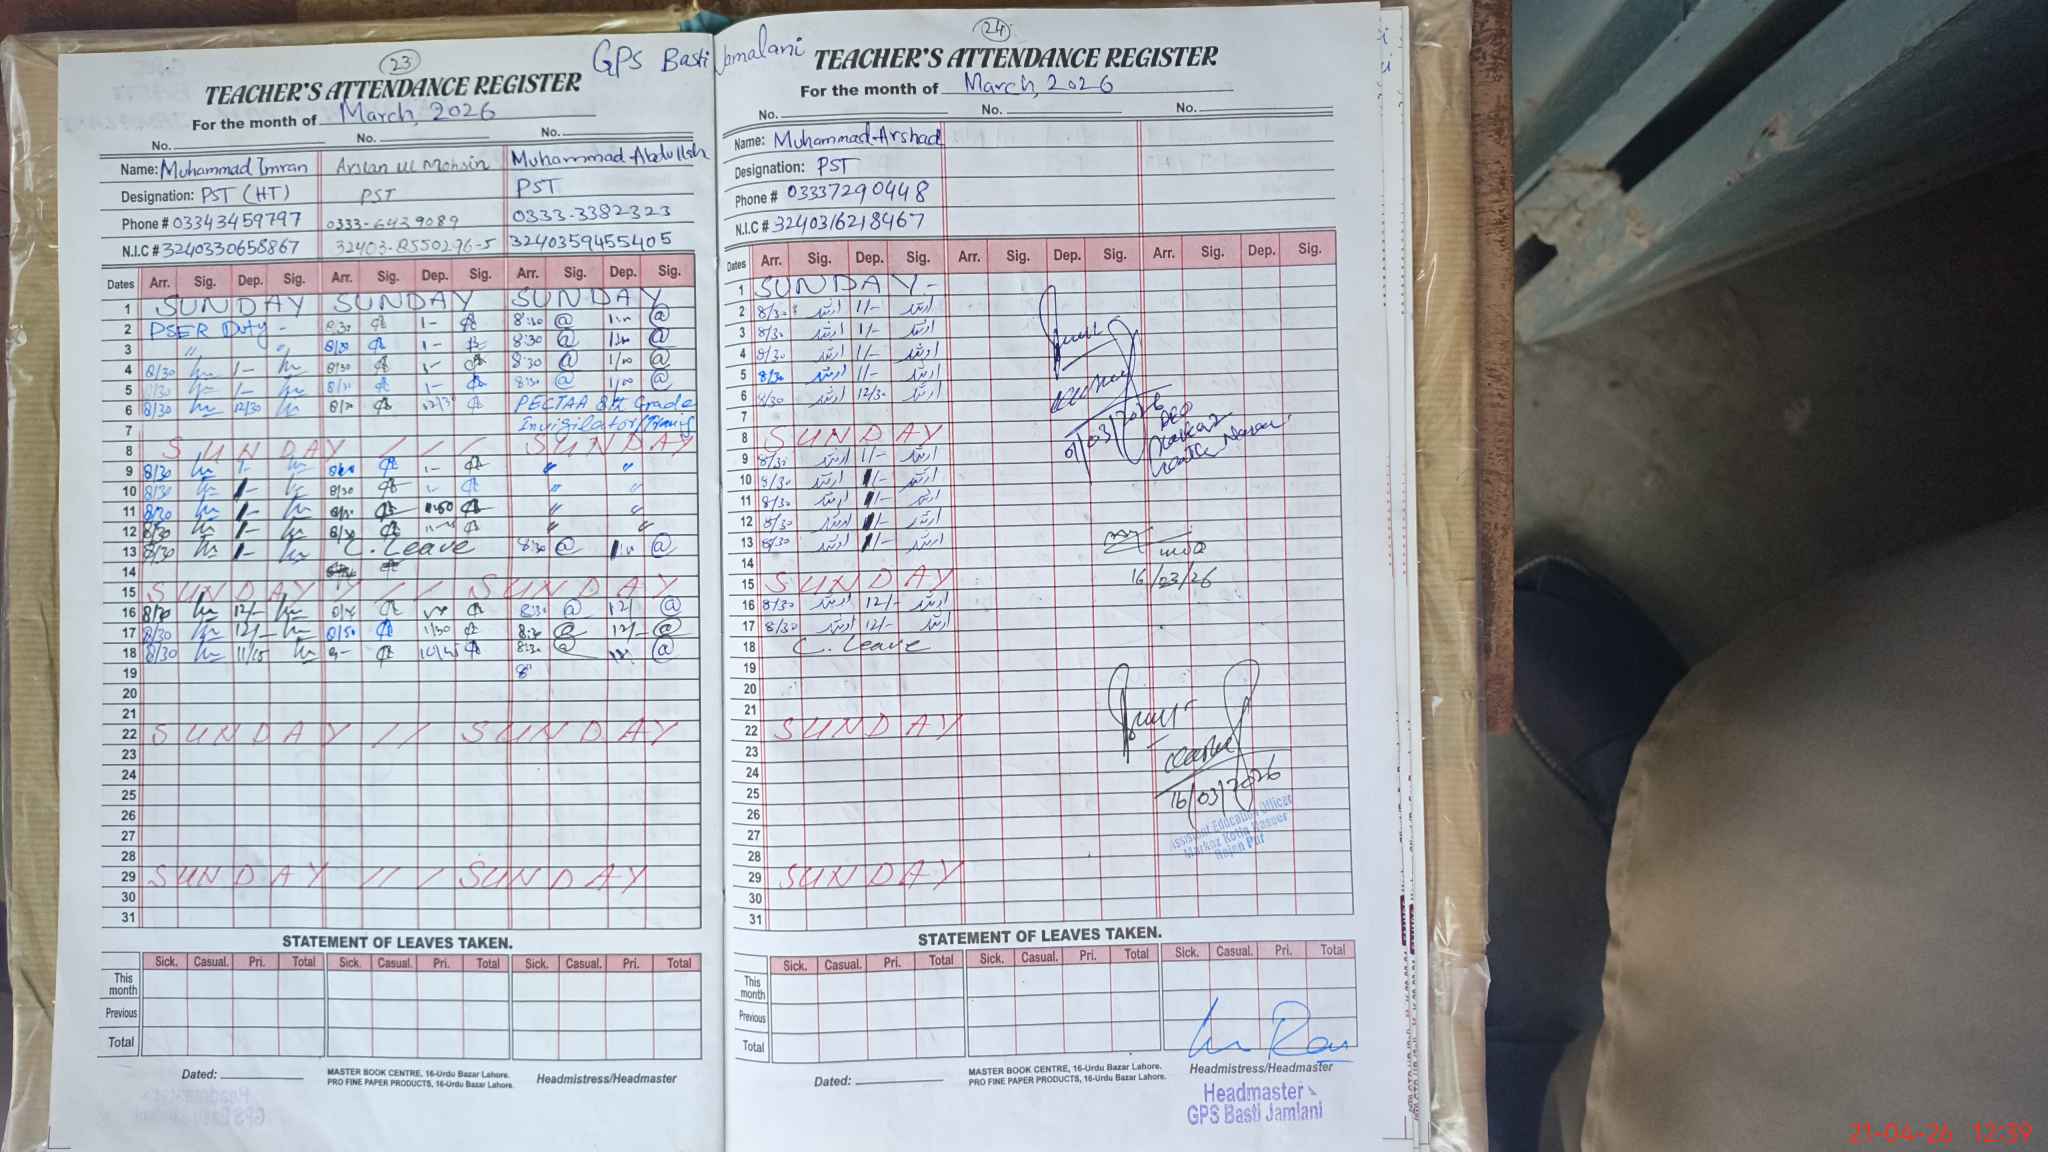 GPS Basti Jamalani
23
TEACHER'S ATTENDANCE REGISTER
For the month of March, 2026
No. No. No.
Name: Muhammad Imran Arslan ul Mohsin Muhammad Abdullah
Designation: PST (HT) PST PST
Phone # 03343459797 0333-6439089 0333-3382323
N.I.C # 3240330658867 32403-8550296-5 3240359455405
Dates Arr. Sig. Dep. Sig. Arr. Sig. Dep. Sig. Arr. Sig. Dep. Sig.
1 SUNDAY SUNDAY SUNDAY
2 PSER Duty - 8:30 1- 8:30 @ 1:00 @
3 " " 8/30 1- 8:30 @ 1:00 @
4 8/30 1- 8/30 1- 8:30 @ 1/00 @
5 8/30 1- 8/30 1- 8:30 @ 1/00 @
6 8/30 12/30 8/30 12/30 PECTAA 8th Grade
7 Invigilator
8 SUNDAY / / / SUNDAY
9 8/30 1- 1- " "
10 8/30 1- 8/30 1- " "
11 8/30 1- " "
12 8/30 1- 8/30 " "
13 8/30 1- C. Leave 8:30 @ @
14
15 SUNDAY / / SUNDAY
16 8/30 12/- 8:30 @ 12/ @
17 8/30 12/- 8/50 1/30 8:30 @ 12/- @
18 8/30 11/15 9- 8:30 @ @
19 8
20
21
22 SUNDAY / / SUNDAY
23
24
25
26
27
28
29 SUNDAY / / / SUNDAY
30
31
STATEMENT OF LEAVES TAKEN.
Sick. Casual. Pri. Total Sick. Casual. Pri. Total Sick. Casual. Pri. Total
This month
Previous
Total
Dated: MASTER BOOK CENTRE, 16-Urdu Bazar Lahore. Headmistress/Headmaster
PRO FINE PAPER PRODUCTS, 16-Urdu Bazar Lahore.
24
TEACHER'S ATTENDANCE REGISTER
For the month of March, 2026
No. No. No.
Name: Muhammad Arshad
Designation: PST
Phone # 03337290448
N.I.C # 3240316218467
Dates Arr. Sig. Dep. Sig. Arr. Sig. Dep. Sig. Arr. Sig. Dep. Sig.
1 SUNDAY -
2 8/30 ارشد 1/- ارشد
3 8/30 ارشد 1/- ارشد
4 8/30 ارشد 1/- ارشد
5 8/30 ارشد 1/- ارشد
6 8/30 ارشد 12/30 ارشد
7
01/03/2026
8 SUNDAY
9 8/30 ارشد 1/- ارشد
10 8/30 ارشد 1/- ارشد
11 8/30 ارشد 1/- ارشد
12 8/30 ارشد 1/- ارشد
13 8/30 ارشد 1/- ارشد
14
15 SUNDAY
16/03/26
16 8/30 ارشد 12/- ارشد
17 8/30 ارشد 12/- ارشد
18 C. Leave
19
20
21
22 SUNDAY
23
24
25
16/03/2026
26
27
Assistant Education Officer
Markaz Kotla Naseer
Rajan Pur
28
29 SUNDAY
30
31
STATEMENT OF LEAVES TAKEN.
Sick. Casual. Pri. Total Sick. Casual. Pri. Total Sick. Casual. Pri. Total
This month
Previous
Total
Dated: MASTER BOOK CENTRE, 16-Urdu Bazar Lahore. Headmistress/Headmaster
PRO FINE PAPER PRODUCTS, 16-Urdu Bazar Lahore.
Headmaster
GPS Basti Jamlani
21-04-26 12:39